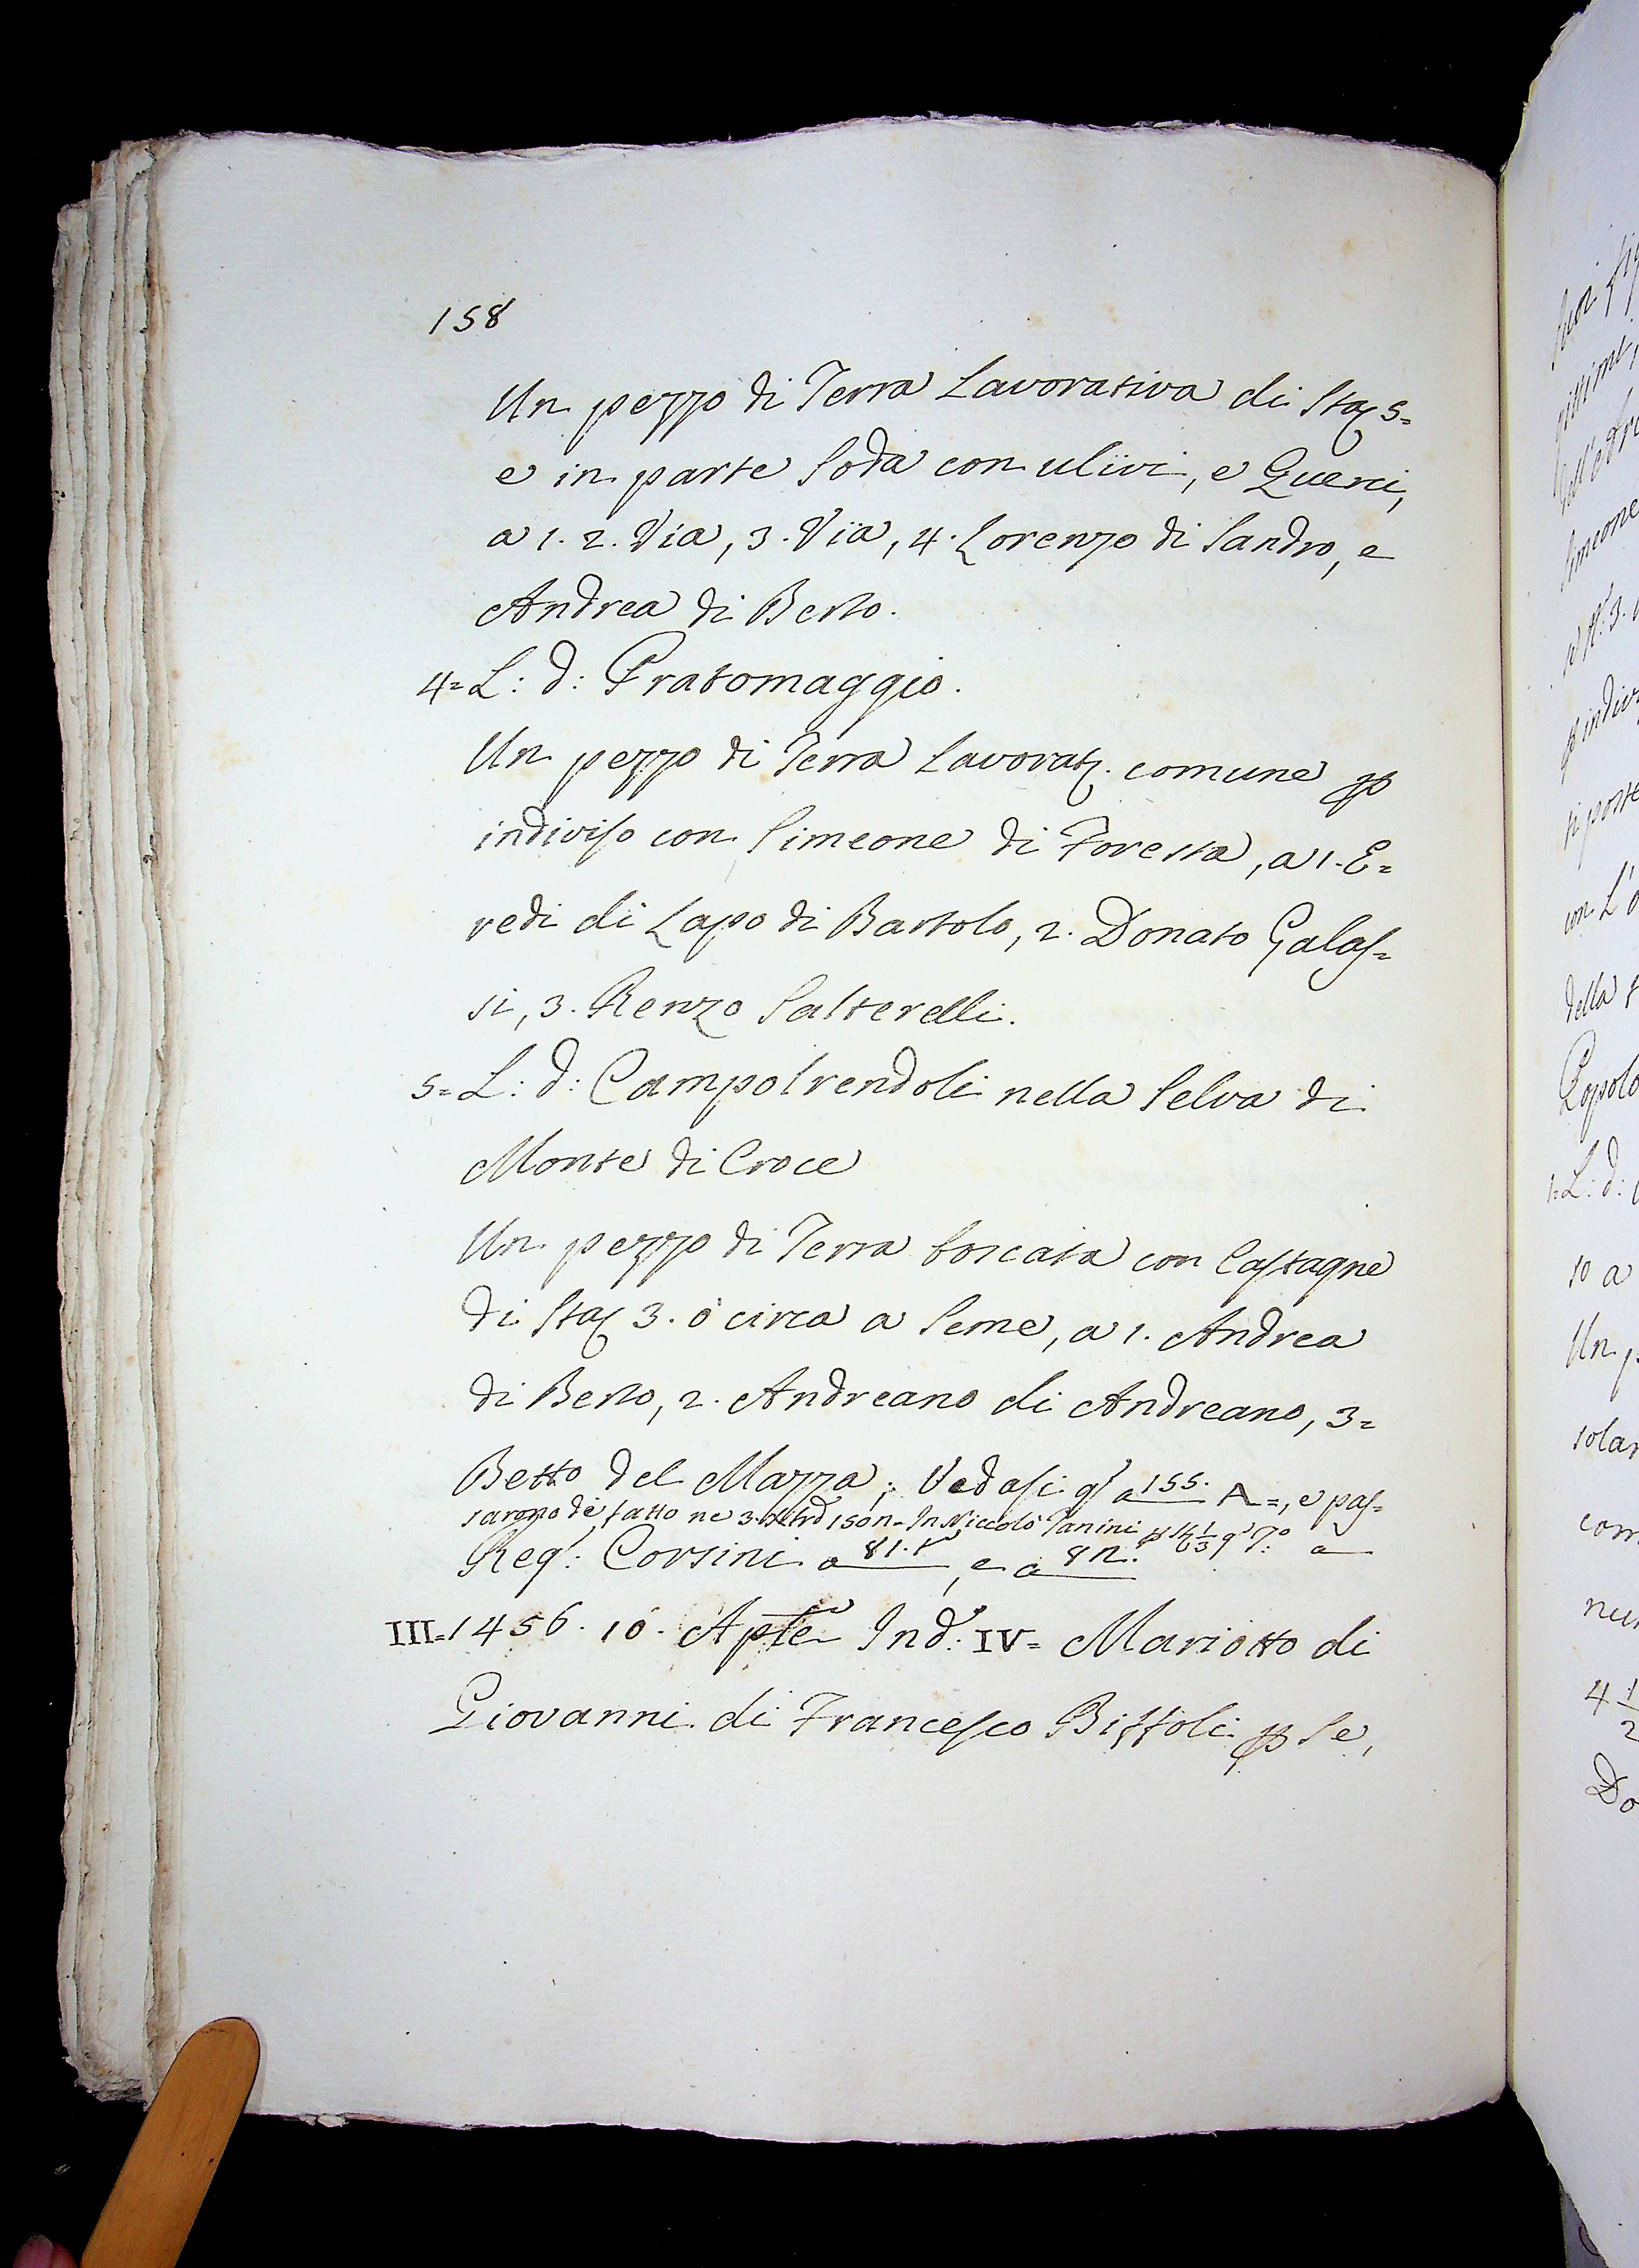 158
Un pezzo di Terra Lavorativa di Staj 5=
e in parte soda con ulivi, e Querci,
a 1. 2. Via, 3. Via, 4. Lorenzo di Sandro, e
Andrea di Berto.
4= L: d: Pratomaggio.
Un pezzo di Terra Lavorat. comune p
indiviso con Simeone di Foresta, a 1. E=
redi di Lapo di Bartolo, 2. Donato Galas=
si, 3. Renzo Salterelli.
5= L: d: Campolrendoli nella Selva di
Monte di Croce
Un pezzo di Terra boscata con Castagne
di Staj 3. ò circa a Seme, a 1. Andrea
di Berto, 2. Andreano di Andreano, 3=
Betto del Mazza; Vedasi q a 155. A=, e pas=
sarono de fatto ne 3. 150n= In Niccolò Tanini
Reg: Corsini a 81. e a 82. a
III= 1456. 10. Aple Ind: IV= Mariotto di
Giovanni di Francesco Biffoli p se,